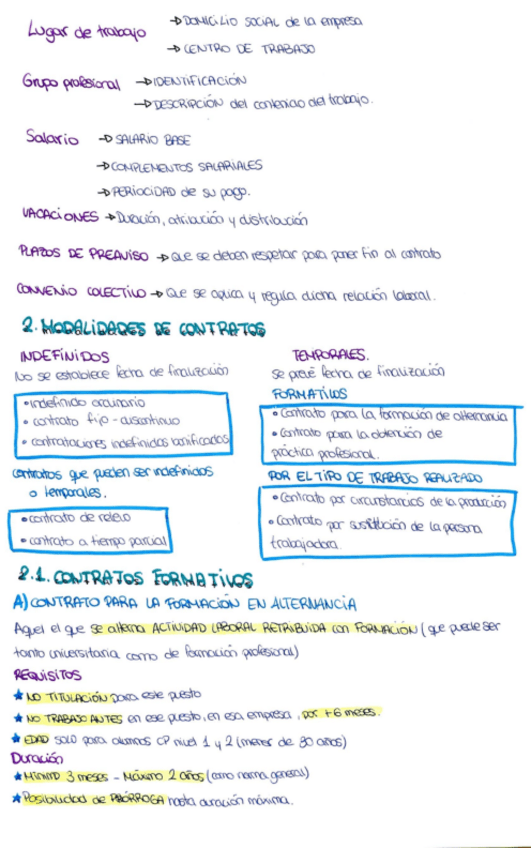 Lugar de trabajo → DOMICILIO SOCIAL de la empresa
→ CENTRO DE TRABAJO
Grupo profesional → IDENTIFICACIÓN
→ DESCRIPCIÓN del contenido del trabajo.
Salario → SALARIO BASE
→ COMPLEMENTOS SALARIALES
→ PERIOCIDAD de su pago.
VACACIONES → Duración, atribución y distribución
PLAZOS DE PREAVISO → Que se deben respetar para poner fin al contrato
CONVENIO COLECTIVO → Que se aplica y regula dicha relación laboral.
2. MODALIDADES DE CONTRATOS
INDEFINIDOS
No se establece fecha de finalización
• indefinido ordinario
• contrato fijo-discontinuo
• contrataciones indefinidas bonificadas
contratos que pueden ser indefinidos
o temporales.
• contrato de relevo
• contrato a tiempo parcial
TEMPORALES.
Se prevé fecha de finalización
FORMATIVOS
• Contrato para la formación de alternancia
• Contrato para la obtención de
práctica profesional.
POR EL TIPO DE TRABAJO REALIZADO
• Contrato por circunstancias de la producción
• Contrato por sustitución de la persona
trabajadora.
2.1. CONTRATOS FORMATIVOS
A) CONTRATO PARA LA FORMACIÓN EN ALTERNANCIA
Aquel el que se alterna ACTIVIDAD LABORAL RETRIBUIDA con FORMACIÓN (que puede ser
tanto universitaria como de formación profesional)
REQUISITOS
★ NO TITULACIÓN para este puesto
★ NO TRABAJO ANTES en ese puesto, en esa empresa, por +6 meses.
★ EDAD solo para alumnos CP nivel 1 y 2 (menor de 30 años)
Duración
★ Mínimo 3 meses - Máximo 2 años (como norma general)
★ Posibilidad de PRÓRROGA hasta duración máxima.